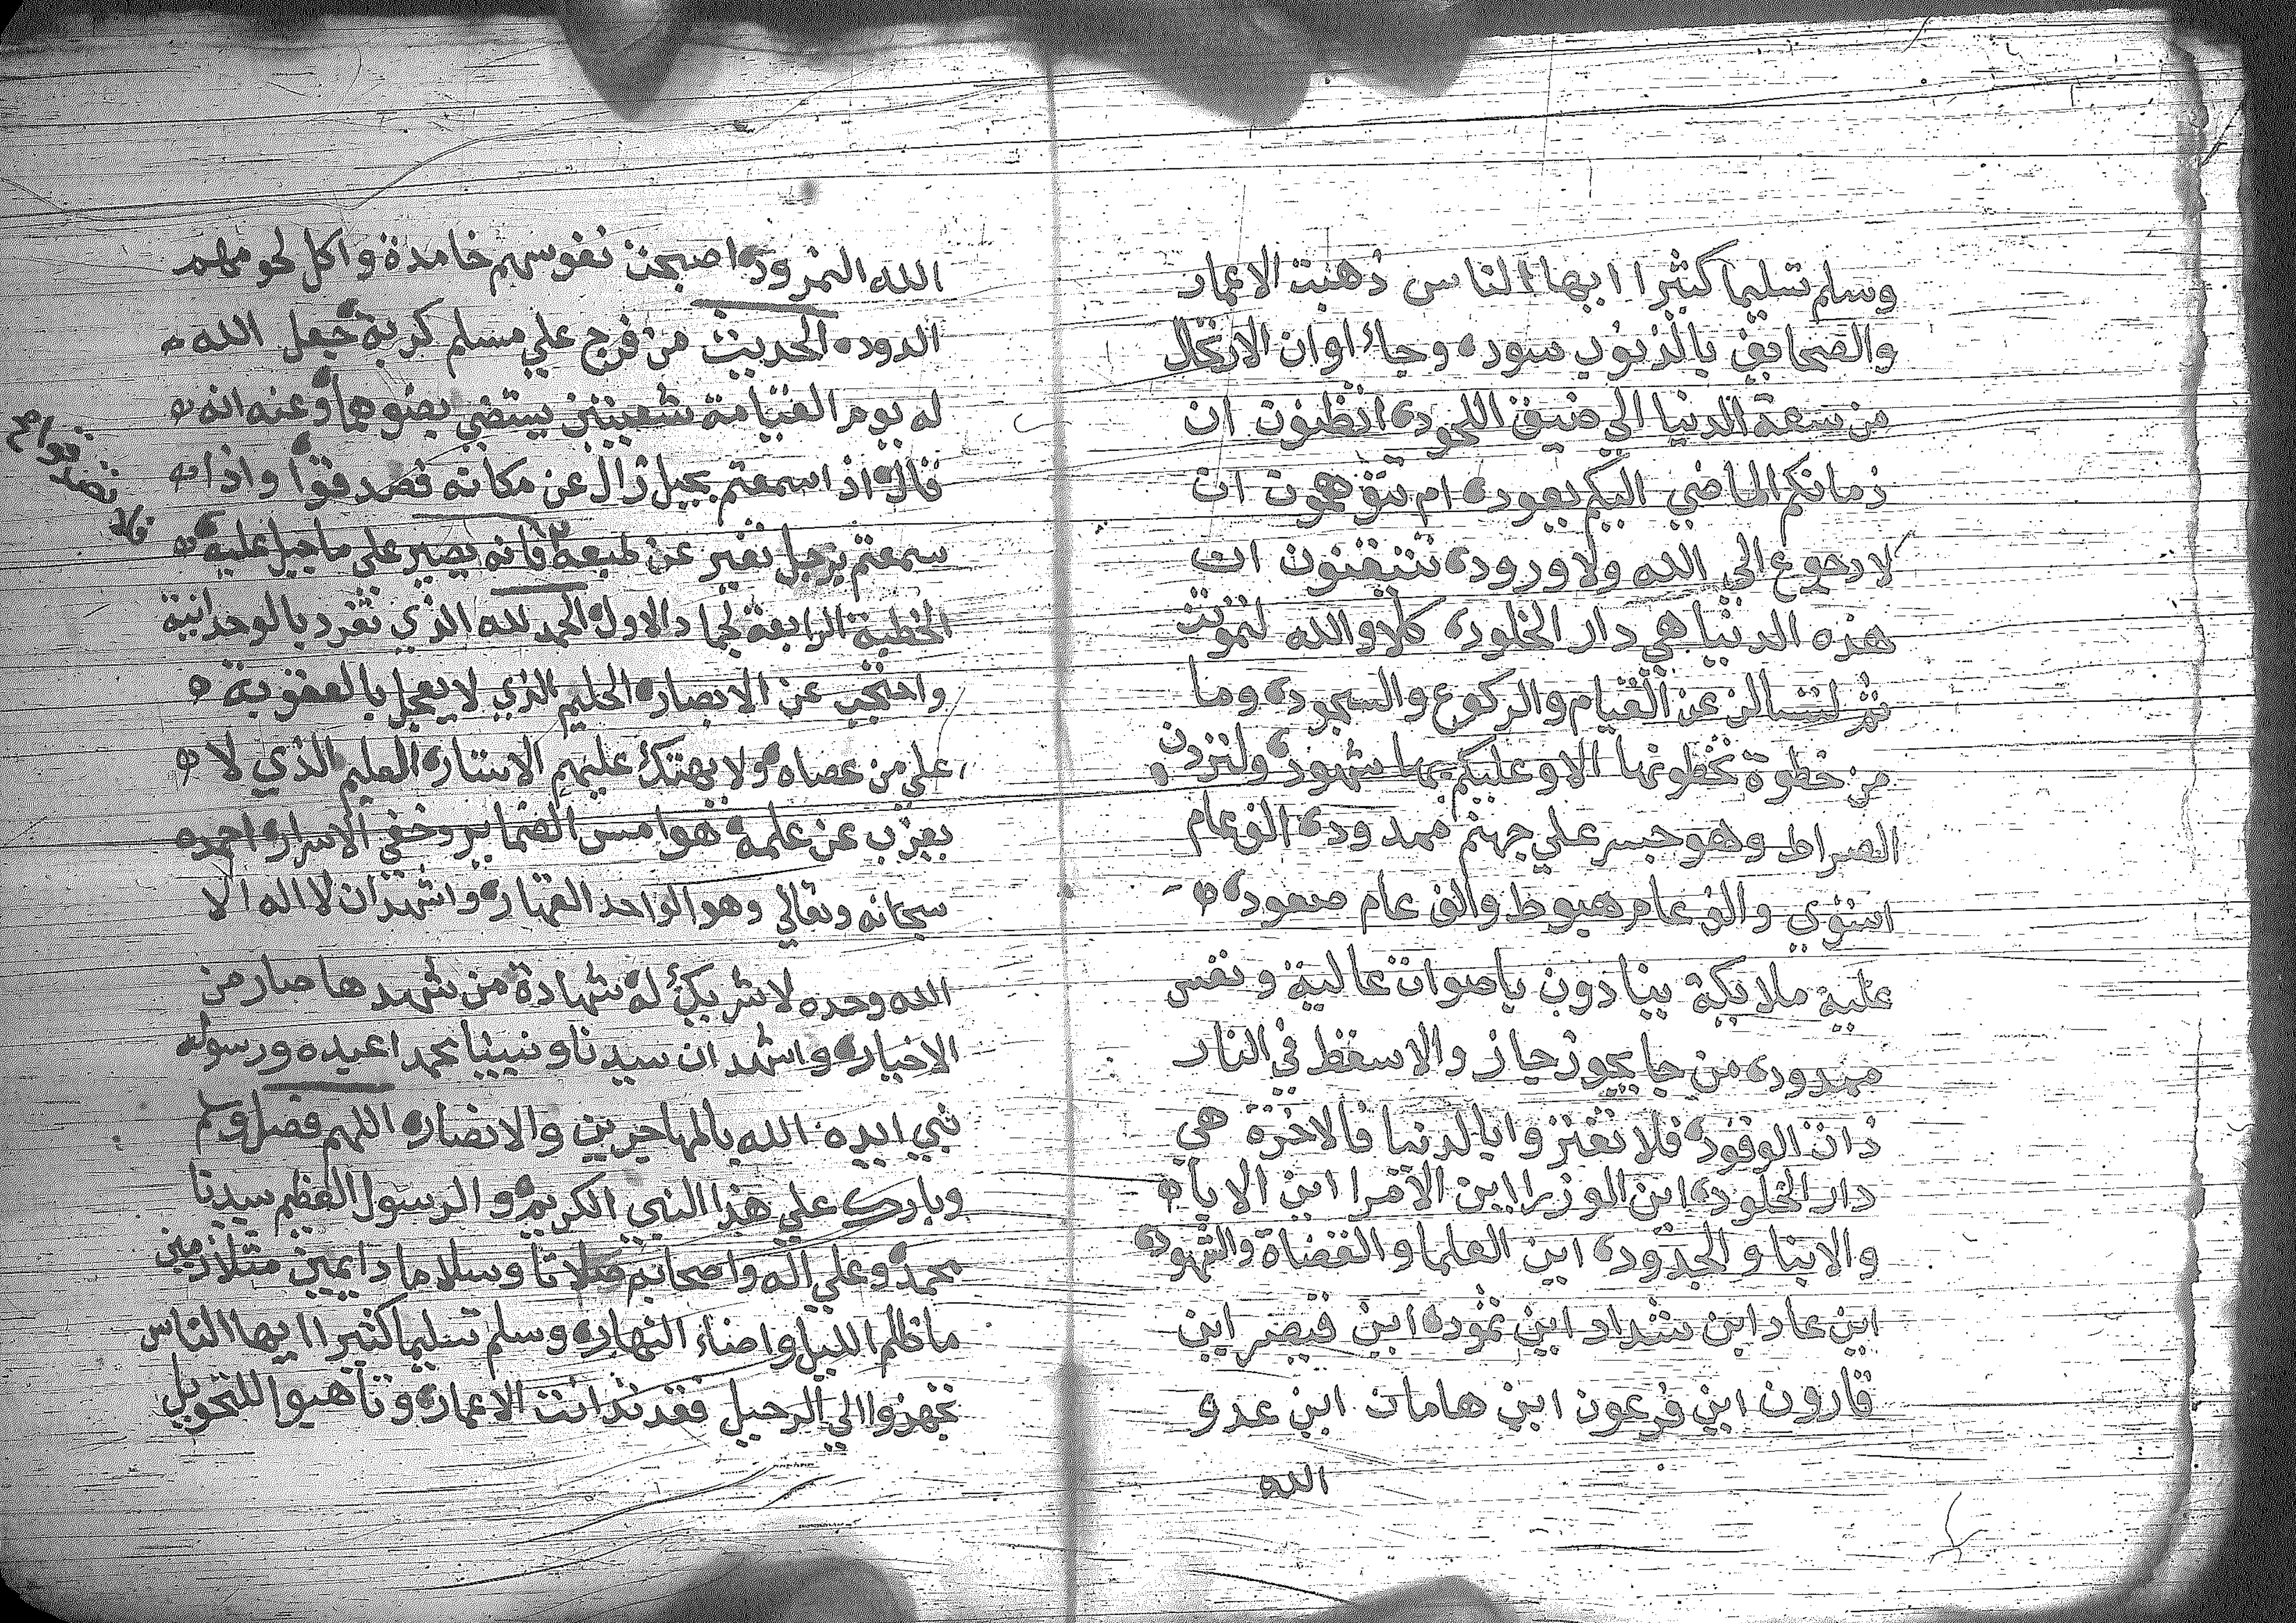 وسلم تسليما كثيرا ايها الناس ذهبت الاعمار
والصحايف بالذنوب سود وجاء اوان الارتحال
من سعة الدنيا الي ضيق اللحود اتظنون ان
زمانكم الماضي اليكم يعود ام تتوهمون ان
لا رجوع الي الله ولا ورود تتيقنون ان
هذه الدنيا هي دار الخلود كلا والله لتموتن
ثم لتسالن عن القيام والركوع والسجود وما
من خطوة تخطونها الا وعليكم بها شهود ولتردن
الصراط وهو جسر علي جهنم ممدود الف عام
استوي والف عام هبوط والف عام صعود
عليه ملايكة ينادون باصوات عالية ونفس
ممدود من جا بجوز جاز والا سقط في النار
ذات الوقود فلا تغتروا بالدنيا فالاخرة هي
دار الخلود اين الوزرا اين الامرا اين الابا
والابنا والجدود اين العلما والقضاة والشهود
اين عاد اين شداد اين ثمود اين قيصر اين
قارون اين فرعون اين هامان اين عدو
الله
الله النمرود اصبحت نفوسهم خامدة واكل لحومهم
الدود الحديث من فرج علي مسلم كربة جعل الله
له يوم القيامة شعبتين يستضي بضوهما وعنه انه
قال اذا سمعتم بجبل زال عن مكانه فصدقوا واذا
سمعتم برجل تغير عن طبعه فانه يصير علي ما جبل عليه
الخطبة الرابعة لجماد الاول الحمد لله الذي تفرد بالوحدانية
واحتجب عن الابصار الحليم الذي لا يعجل بالعقوبة
علي من عصاه ولا يهتك عليهم الاستار العليم الذي لا
يعزب عن علمه هوامس الضماير وخفي الاسرار احمده
سبحانه وتعالي وهو الواحد القهار واشهد ان لا اله الا
الله وحده لا شريك له شهادة من شهد ها صار من
الاخيار واشهد ان سيدنا ونبينا محمدا عبده ورسوله
نبي ايده الله بالمهاجرين والانصار اللهم فصل وسلم
وبارك علي هذا النبي الكريم والرسول العظيم سيدنا
محمد وعلي اله واصحابه صلاتا وسلاما دايمين متلازمين
ما ظلم الليل واضاء النهار وسلم تسليما كثيرا ايها الناس
تجهزوا الي الرحيل فقد تدانت الاعمار وتاهبوا للتحويل